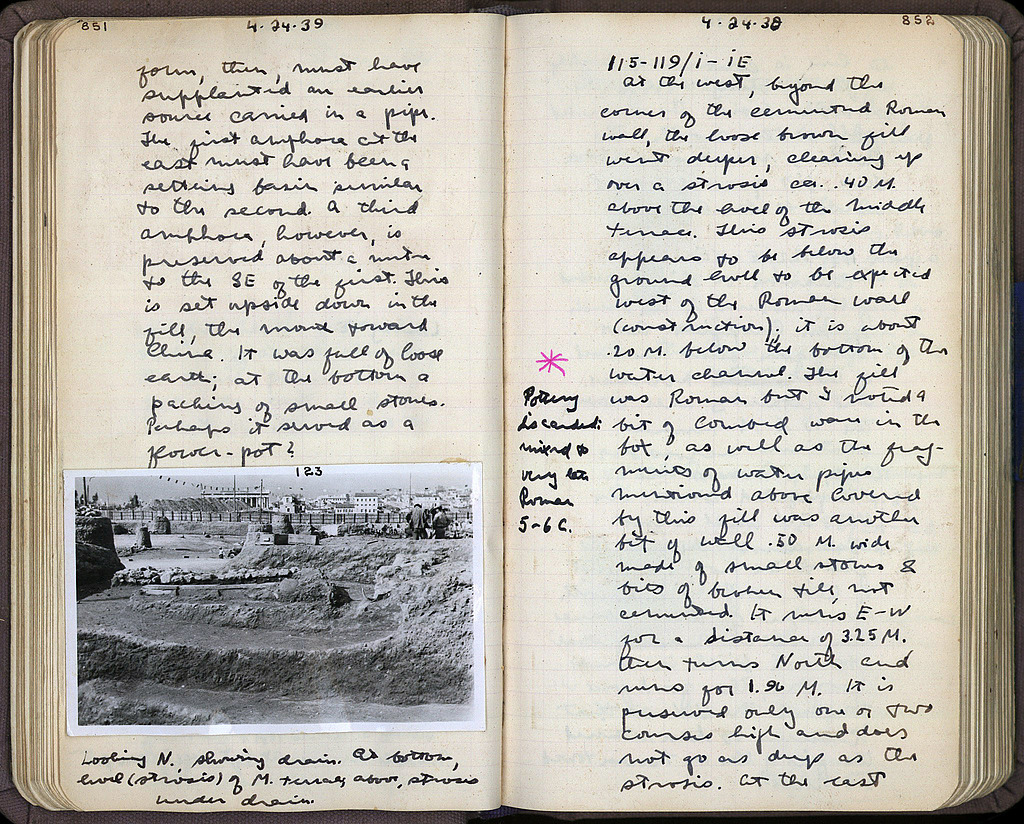 851
4·24·39
form, then, must have
supplanted an earlier
source carried in a pipe.
The first amphora at the
east must have been a
settling basin similar
to the second. A third
amphora, however, is
preserved about a metre
to the SE of the first. This
is set upside down in the
fill, the mouth toward
China. It was full of loose
earth; at the bottom a
packing of small stones.
Perhaps it served as a
flower-pot?
123
Looking N. showing drain. At bottom,
level (strosis) of M. terrace; above, strosis
under drain.
4·24·38
852
115-119/i-iE
At the west, beyond the
corner of the cemented Roman
wall, the loose brown fill
went deeper, clearing up
over a strosis ca. .40 M.
above the level of the Middle
Terrace. This strosis
appears to be below the
ground level to be expected
west of the Roman wall
(construction); it is about
.20 M. below the bottom of the
water channel. The fill
was Roman but I noted a
bit of Combed ware in the
lot, as well as the frag-
ments of water pipes
mentioned above. Covered
by this fill was another
bit of wall .50 M. wide
made of small stones &
bits of broken tile, not
cemented. It runs E-W
for a distance of 3.25 M.
then turns North and
runs for 1.90 M. It is
preserved only one or two
courses high and does
not go as deep as the
strosis. At the east
*
Pottery
discarded:
mixed to
very late
Roman
5-6 C.